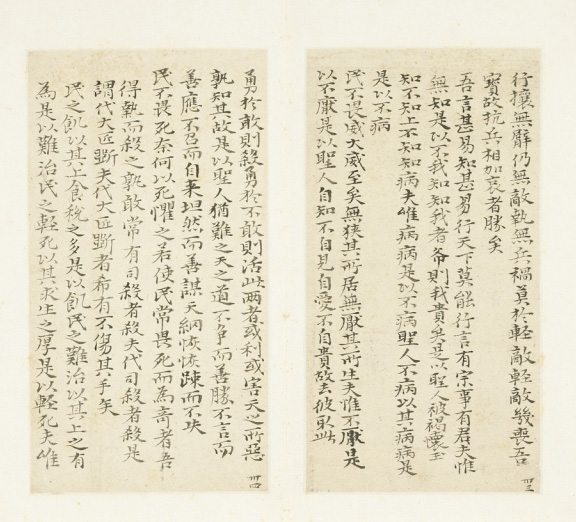 行攘無臂仍無敵執無兵禍莫於輕敵輕敵幾喪吾
寶故抗兵相加哀者勝矣
吾言甚易知甚易行天下莫能行言有宗事有君夫惟
無知是以不我知知我者希則我貴矣是以聖人被褐懷玉
知不知上不知知病夫唯病病是以不病聖人不病以其病病是
是以不病
民不畏威大威至矣無狹其所居無厭其所生夫惟不厭是
以不厭是以聖人自知不自見自愛不自貴故去彼取此
卌三
勇於敢則殺勇於不敢則活此兩者或利或害天之所惡
孰知其故是以聖人猶難之天之道不爭而善勝不言而
善應不召而自来坦然而善謀天網恢恢踈而不失
民不畏死奈何以死懼之若使民常畏死而為奇者吾
得執而殺之孰敢常有司殺者殺夫代司殺者殺是
謂代大匠斲夫代大匠斲者希有不傷其手矣
民之飢以其上食稅之多是以飢民之難治以其上之有
為是以難治民之輕死以其求生之厚是以輕死夫唯
卌四